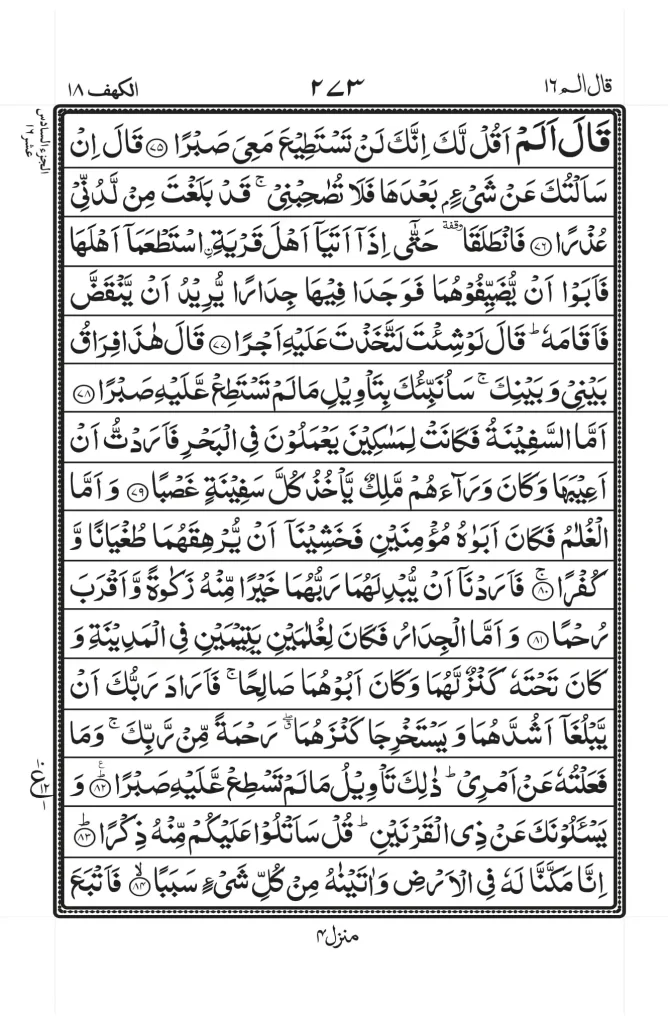 قال الم ١٦
٢٧٣
الكهف ١٨
الجزء السادس عشر ١٦
قَالَ اَلَمْ اَقُلْ لَّكَ اِنَّكَ لَنْ تَسْتَطِيْعَ مَعِىَ صَبْرًا ﴿٧٥﴾ قَالَ اِنْ
سَاَلْتُكَ عَنْ شَىْءٍۭ بَعْدَهَا فَلَا تُصٰحِبْنِىْ ۚ قَدْ بَلَغْتَ مِنْ لَّدُنِّىْ
عُذْرًا ﴿٧٦﴾ فَانْطَلَقَا وقفة حَتّٰٓى اِذَاۤ اَتَيَاۤ اَهْلَ قَرْيَةِ ࣙاسْتَطْعَمَاۤ اَهْلَهَا
فَاَبَوْا اَنْ يُّضَيِّفُوْهُمَا فَوَجَدَا فِيْهَا جِدَارًا يُّرِيْدُ اَنْ يَّنْقَضَّ
فَاَقَامَهٗ ؕ قَالَ لَوْ شِئْتَ لَتَّخَذْتَ عَلَيْهِ اَجْرًا ﴿٧٧﴾ قَالَ هٰذَا فِرَاقُ
بَيْنِىْ وَبَيْنِكَ ۚ سَاُنَبِّئُكَ بِتَاْوِيْلِ مَا لَمْ تَسْتَطِعْ عَّلَيْهِ صَبْرًا ﴿٧٨﴾
اَمَّا السَّفِيْنَةُ فَكَانَتْ لِمَسٰكِيْنَ يَعْمَلُوْنَ فِى الْبَحْرِ فَاَرَدْتُّ اَنْ
اَعِيْبَهَا وَكَانَ وَرَآءَهُمْ مَّلِكٌ يَّاْخُذُ كُلَّ سَفِيْنَةٍ غَصْبًا ﴿٧٩﴾ وَاَمَّا
الْغُلٰمُ فَكَانَ اَبَوٰهُ مُؤْمِنَيْنِ فَخَشِيْنَاۤ اَنْ يُّرْهِقَهُمَا طُغْيَانًا وَّ
كُفْرًا ۚ﴿٨٠﴾ فَاَرَدْنَاۤ اَنْ يُّبْدِلَهُمَا رَبُّهُمَا خَيْرًا مِّنْهُ زَكٰوةً وَّاَقْرَبَ
رُحْمًا ﴿٨١﴾ وَاَمَّا الْجِدَارُ فَكَانَ لِغُلٰمَيْنِ يَتِيْمَيْنِ فِى الْمَدِيْنَةِ وَ
كَانَ تَحْتَهٗ كَنْزٌ لَّهُمَا وَكَانَ اَبُوْهُمَا صَالِحًا ۚ فَاَرَادَ رَبُّكَ اَنْ
يَّبْلُغَاۤ اَشُدَّهُمَا وَيَسْتَخْرِجَا كَنْزَهُمَا ۖ ق رَحْمَةً مِّنْ رَّبِّكَ ۚ وَمَا
فَعَلْتُهٗ عَنْ اَمْرِىْ ؕ ذٰلِكَ تَاْوِيْلُ مَا لَمْ تَسْطِعْ عَّلَيْهِ صَبْرًا ؕ﴿٨٢﴾ وَ
ع
١٢
يَسْـَٔلُوْنَكَ عَنْ ذِى الْقَرْنَيْنِ ؕ قُلْ سَاَتْلُوْا عَلَيْكُمْ مِّنْهُ ذِكْرًا ؕ﴿٨٣﴾
اِنَّا مَكَّنَّا لَهٗ فِى الْاَرْضِ وَاٰتَيْنٰهُ مِنْ كُلِّ شَىْءٍ سَبَبًا ۙ﴿٨٤﴾ فَاَتْبَعَ
منزل ٤